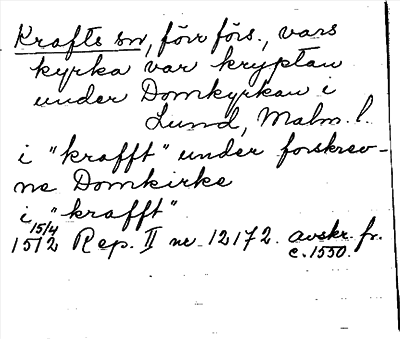 Krafts sn, förr förs., vars
kyrka var kryptan
under Domkyrkan i
Lund, Malm. l.
i "krafft" under forskrev-
ne Domkirke
i "krafft"
15/4
1512 Rep. II nr 12172. avskr. fr.
c. 1550.